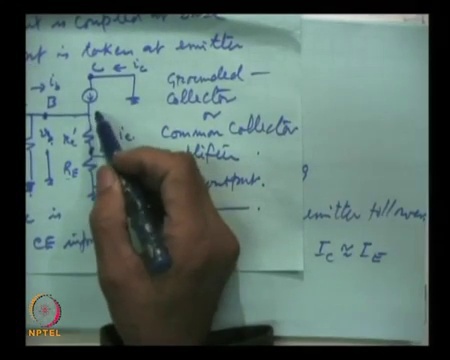 is coupled at base
is taken at emitter
C ← ic
→ ib
B
Grounded —
Collector
or
Common Collector
re'
ie
RE
output.
is
emitter follower
CE
IC ≃ IE
NPTEL